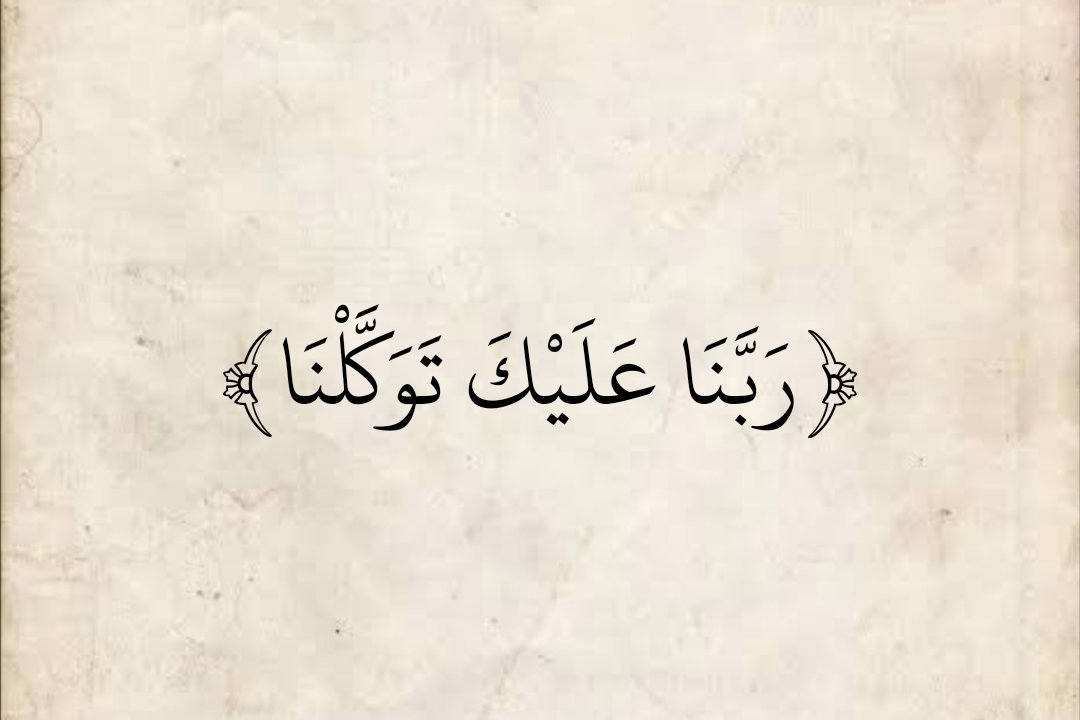 ﴿رَبَّنَا عَلَيْكَ تَوَكَّلْنَا﴾